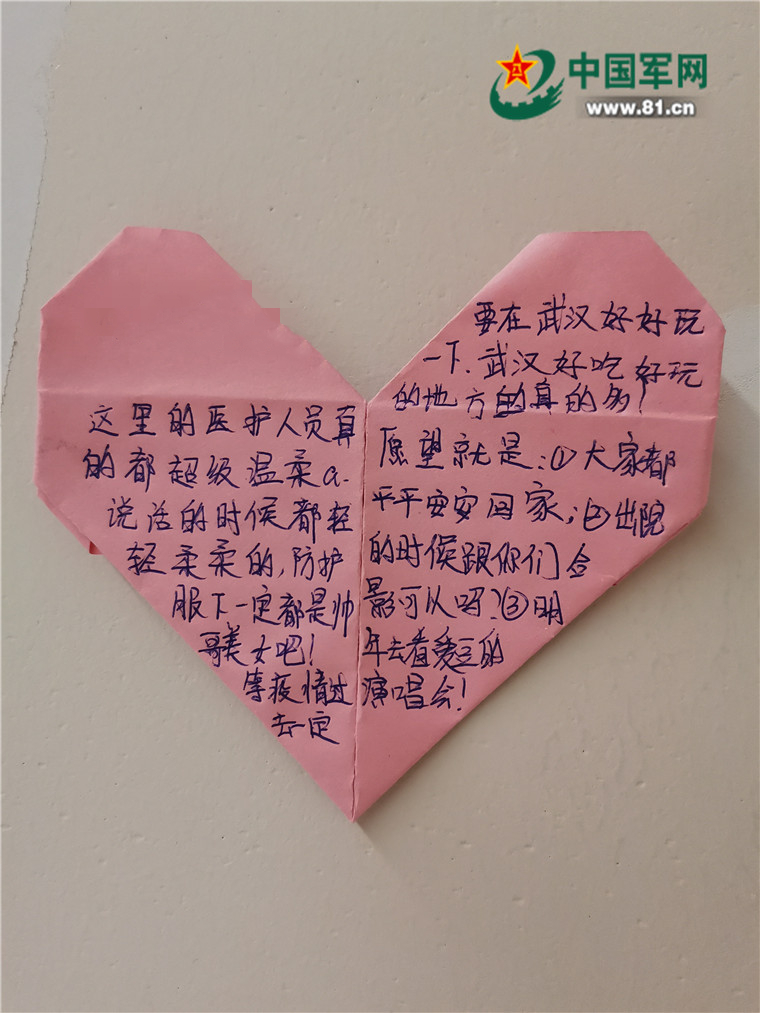 中国军网
www.81.cn
这里的医护人员真
的都超级温柔a.
说话的时候都轻
轻柔柔的,防护
服下一定都是帅
哥美女吧!
等疫情过
去一定
要在武汉好好玩
一下.武汉好吃好玩
的地方的真的多!
愿望就是:①大家都
平平安安回家;②出院
的时候跟你们合
影可以吗?③明
年去看爱豆的
演唱会!